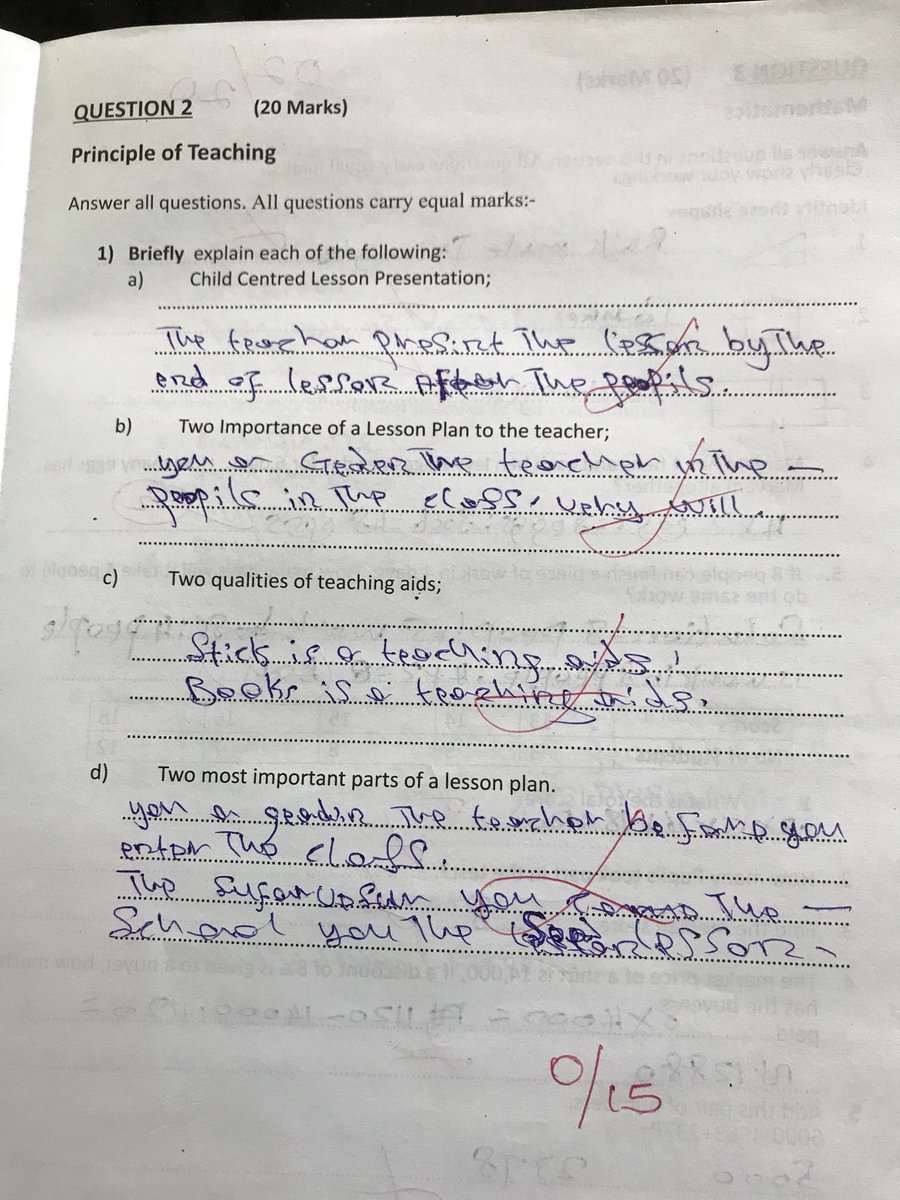 QUESTION 2 (20 Marks)
Principle of Teaching
Answer all questions. All questions carry equal marks:-
1) Briefly explain each of the following:
a) Child Centred Lesson Presentation;
The teachar presint The lesson by The
end of lesson After The poopils.
b) Two Importance of a Lesson Plan to the teacher;
The teacher in The —
poopils in The class, very will.
c) Two qualities of teaching aids;
Stick is a teaching aids,
Books is a teaching aids.
d) Two most important parts of a lesson plan.
The teacher before you
enter The class.
The you The —
School you The lesson
0/15